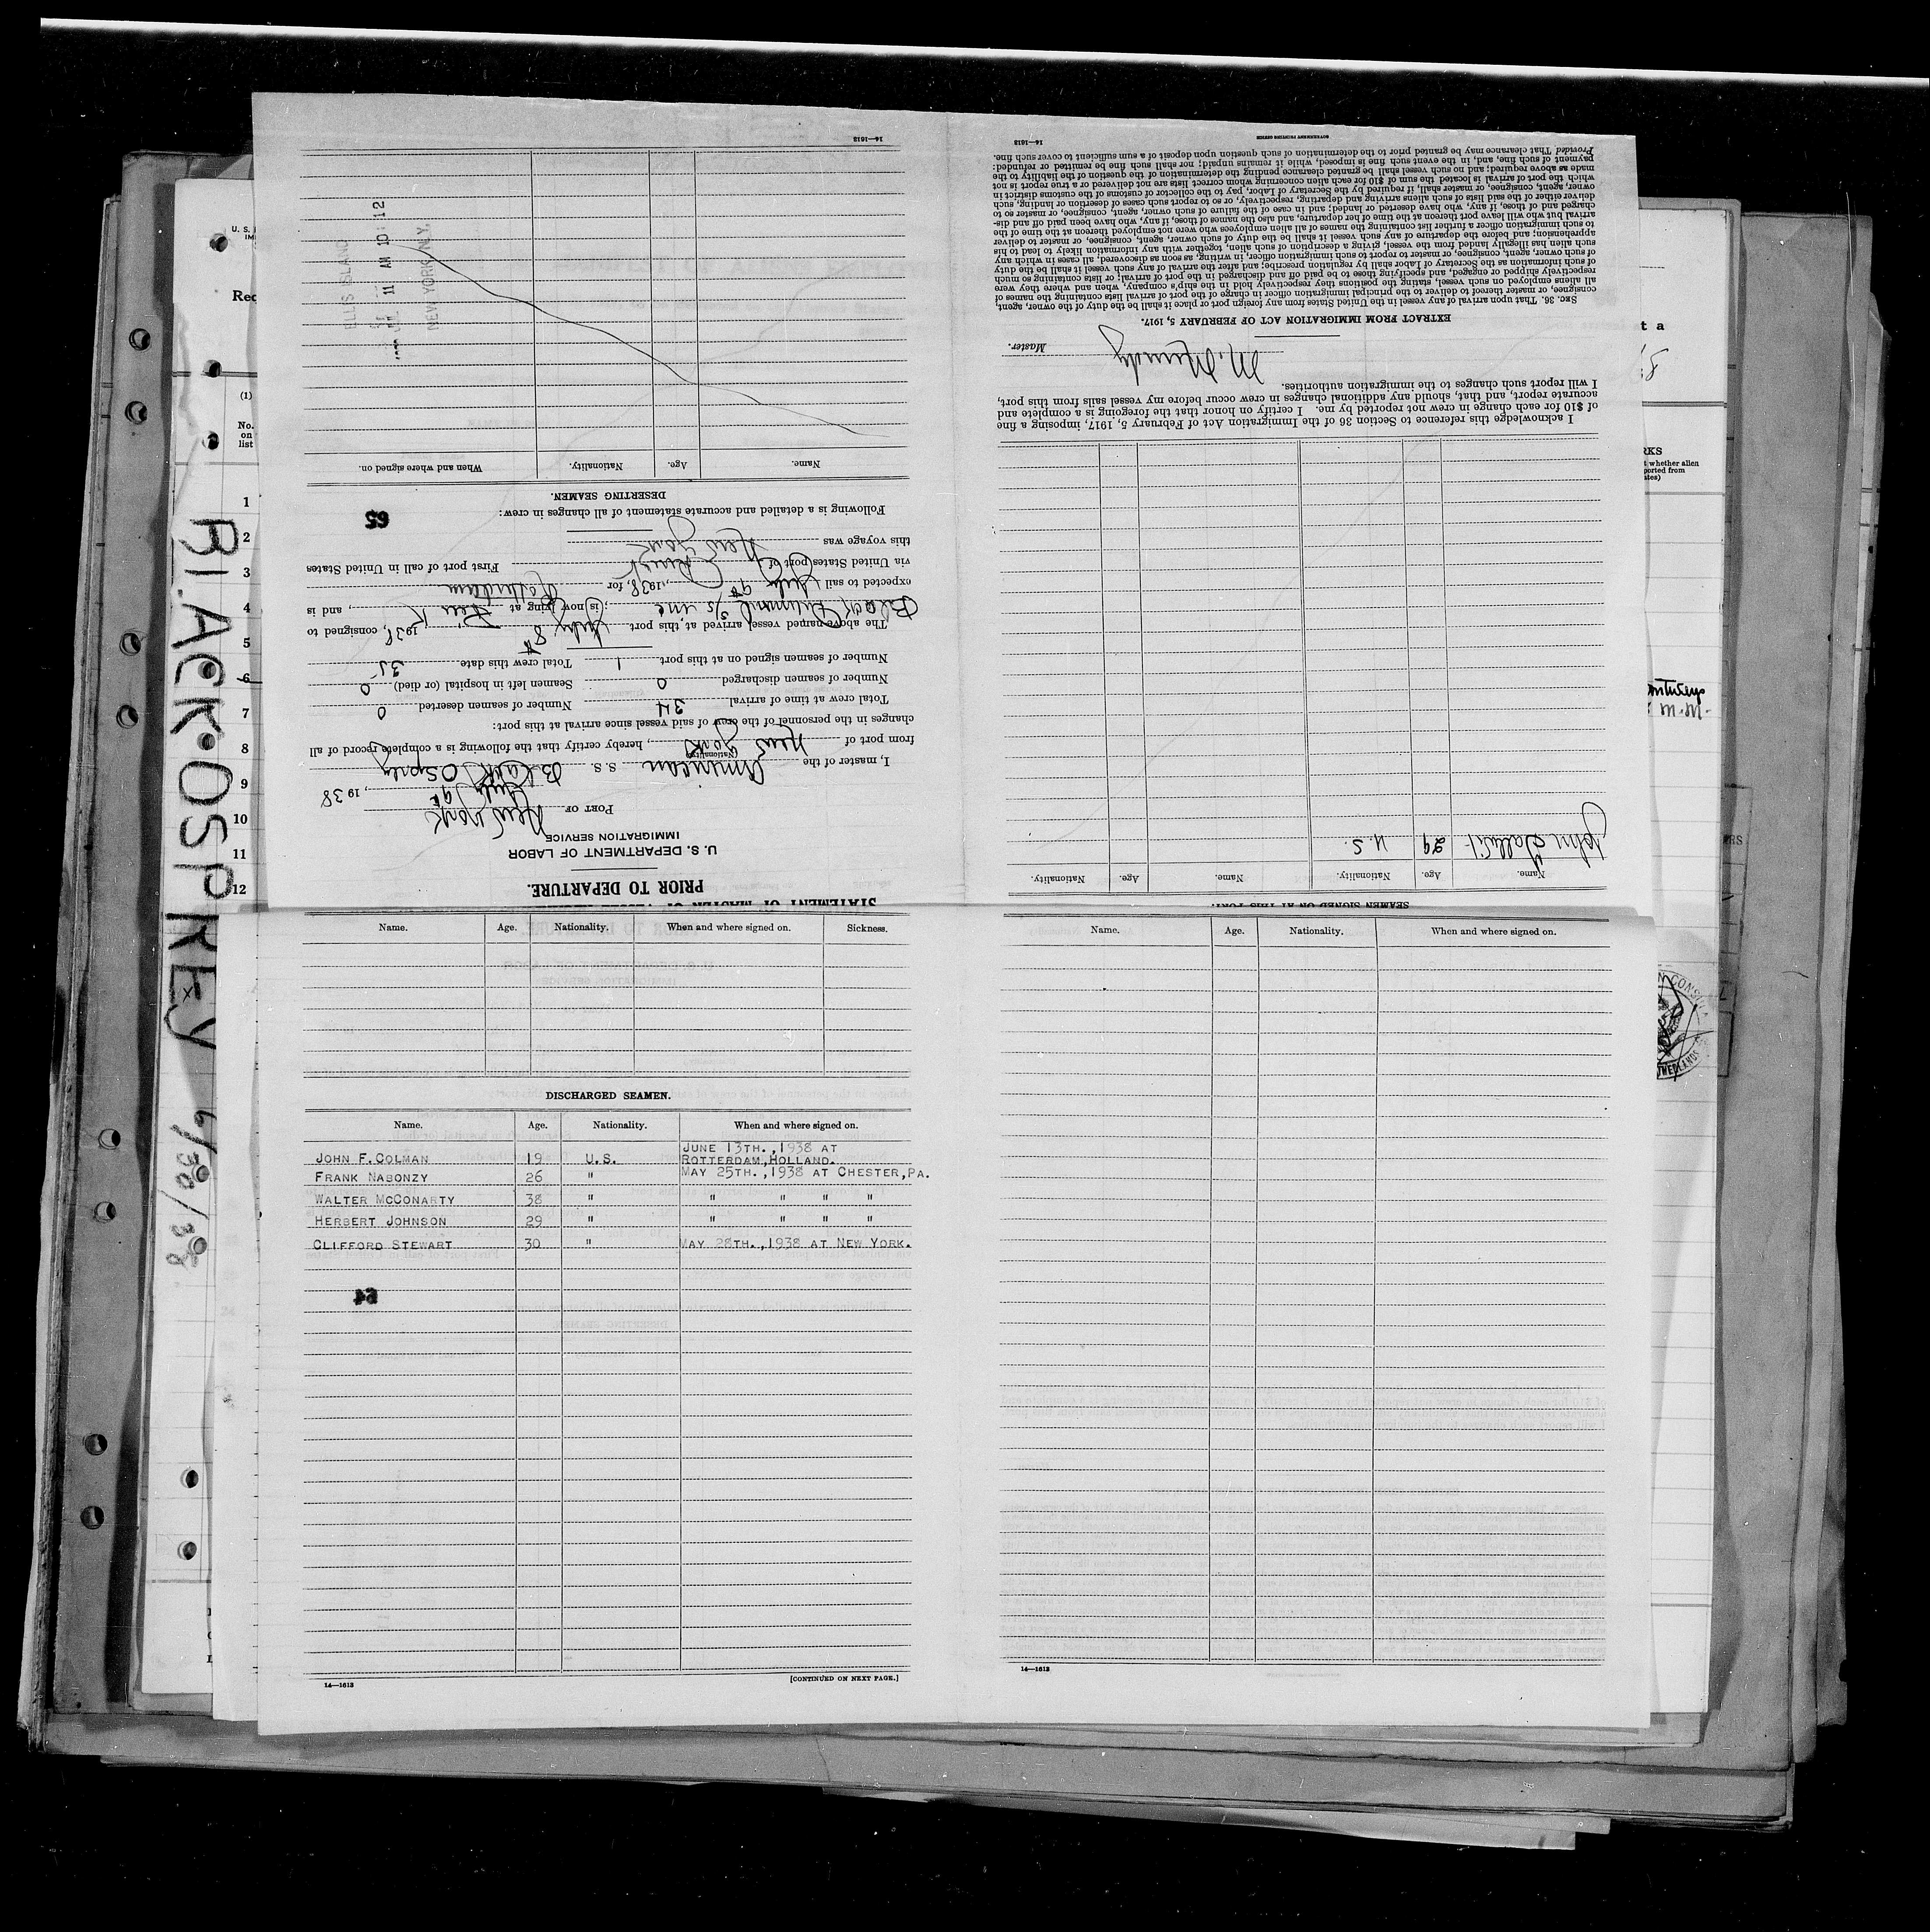 14—1613
ELLIS ISLAND
11 AM 10:12
NEW YORK, N.Y.
STATEMENT OF MASTER OF VESSEL
PRIOR TO DEPARTURE.
U. S. DEPARTMENT OF LABOR
IMMIGRATION SERVICE
PORT OF New York
July 9th, 1938
I, master of the American S. S. Black Osprey
(Nationality)
from port of New York, hereby certify that the following is a complete record of all
changes in the personnel of the crew of said vessel since arrival at this port:
Total crew at time of arrival 34 Number of seamen deserted 0
Number of seamen discharged 0 Seamen left in hospital (or died) 0
Number of seamen signed on at this port 1 Total crew this date 35
The above-named vessel arrived at this port July 8th, 1938, consigned to
Black Diamond S/S Line; is now lying at Pier K, and is
expected to sail July 9th, 1938, for Rotterdam
via United States port of Direct First port of call in United States
this voyage was New York
Following is a detailed and accurate statement of all changes in crew:
65
DESERTING SEAMEN.
Name. Age. Nationality. When and where signed on.
SEAMEN SIGNED ON AT THIS PORT.
Name. Age. Nationality. Name. Age. Nationality.
John 29 U.S.
I acknowledge this reference to Section 36 of the Immigration Act of February 5, 1917, imposing a fine
of $10 for each change in crew not reported by me. I certify on honor that the foregoing is a complete and
accurate report, and that, should any additional changes in crew occur before my vessel sails from this port,
I will report such changes to the immigration authorities.
Master.
EXTRACT FROM IMMIGRATION ACT OF FEBRUARY 5, 1917.
Sec. 36. That upon arrival of any vessel in the United States from any foreign port or place it shall be the duty of the owner, agent,
consignee, or master thereof to deliver to the principal immigration officer in charge of the port of arrival lists containing the names of
all aliens employed on such vessel, stating the positions they respectively hold in the ship's company, when and where they were
respectively shipped or engaged, and specifying those to be paid off and discharged in the port of arrival; or lists containing so much
of such information as the Secretary of Labor shall by regulation prescribe; and after the arrival of any such vessel it shall be the duty
of such owner, agent, consignee, or master to report to such immigration officer, in writing, as soon as discovered, all cases in which any
such alien has illegally landed from the vessel, giving a description of such alien, together with any information likely to lead to his
apprehension; and before the departure of any such vessel it shall be the duty of such owner, agent, consignee, or master to deliver
to such immigration officer a further list containing the names of all alien employees who were not employed thereon at the time of the
arrival but who will leave port thereon at the time of her departure, and also the names of those, if any, who have been paid off and dis-
charged and of those, if any, who have deserted or landed; and in case of the failure of such owner, agent, consignee, or master so to
deliver either of the said lists of such aliens arriving and departing, respectively, or so to report such cases of desertion or landing, such
owner, agent, consignee, or master shall, if required by the Secretary of Labor, pay to the collector of customs of the customs district in
which the port of arrival is located the sum of $10 for each alien concerning whom correct lists are not delivered or a true report is not
made as above required; and no such vessel shall be granted clearance pending the determination of the question of the liability to the
payment of such fine, and, in the event such fine is imposed, while it remains unpaid; nor shall such fine be remitted or refunded:
Provided That clearance may be granted prior to the determination of such question upon deposit of a sum sufficient to cover such fine.
14—1613 GOVERNMENT PRINTING OFFICE
(1)
No.
on
list
1
2
3
4
5
6
7
8
9
10
11
12
BLACK·OSPREY 6/30/38
Name. Age. Nationality. When and where signed on. Sickness.
DISCHARGED SEAMEN.
Name. Age. Nationality. When and where signed on.
JOHN F. COLMAN 19 U.S. JUNE 13TH.,1938 AT
ROTTERDAM,HOLLAND.
FRANK NABONZY 26 " MAY 25TH.,1938 AT CHESTER,PA.
WALTER MCCONARTY 38 " " " " "
HERBERT JOHNSON 29 " " " " "
CLIFFORD STEWART 30 " MAY 28TH.,1938 AT NEW YORK.
64
14—1613 [CONTINUED ON NEXT PAGE.]
Name. Age. Nationality. When and where signed on.
14—1613